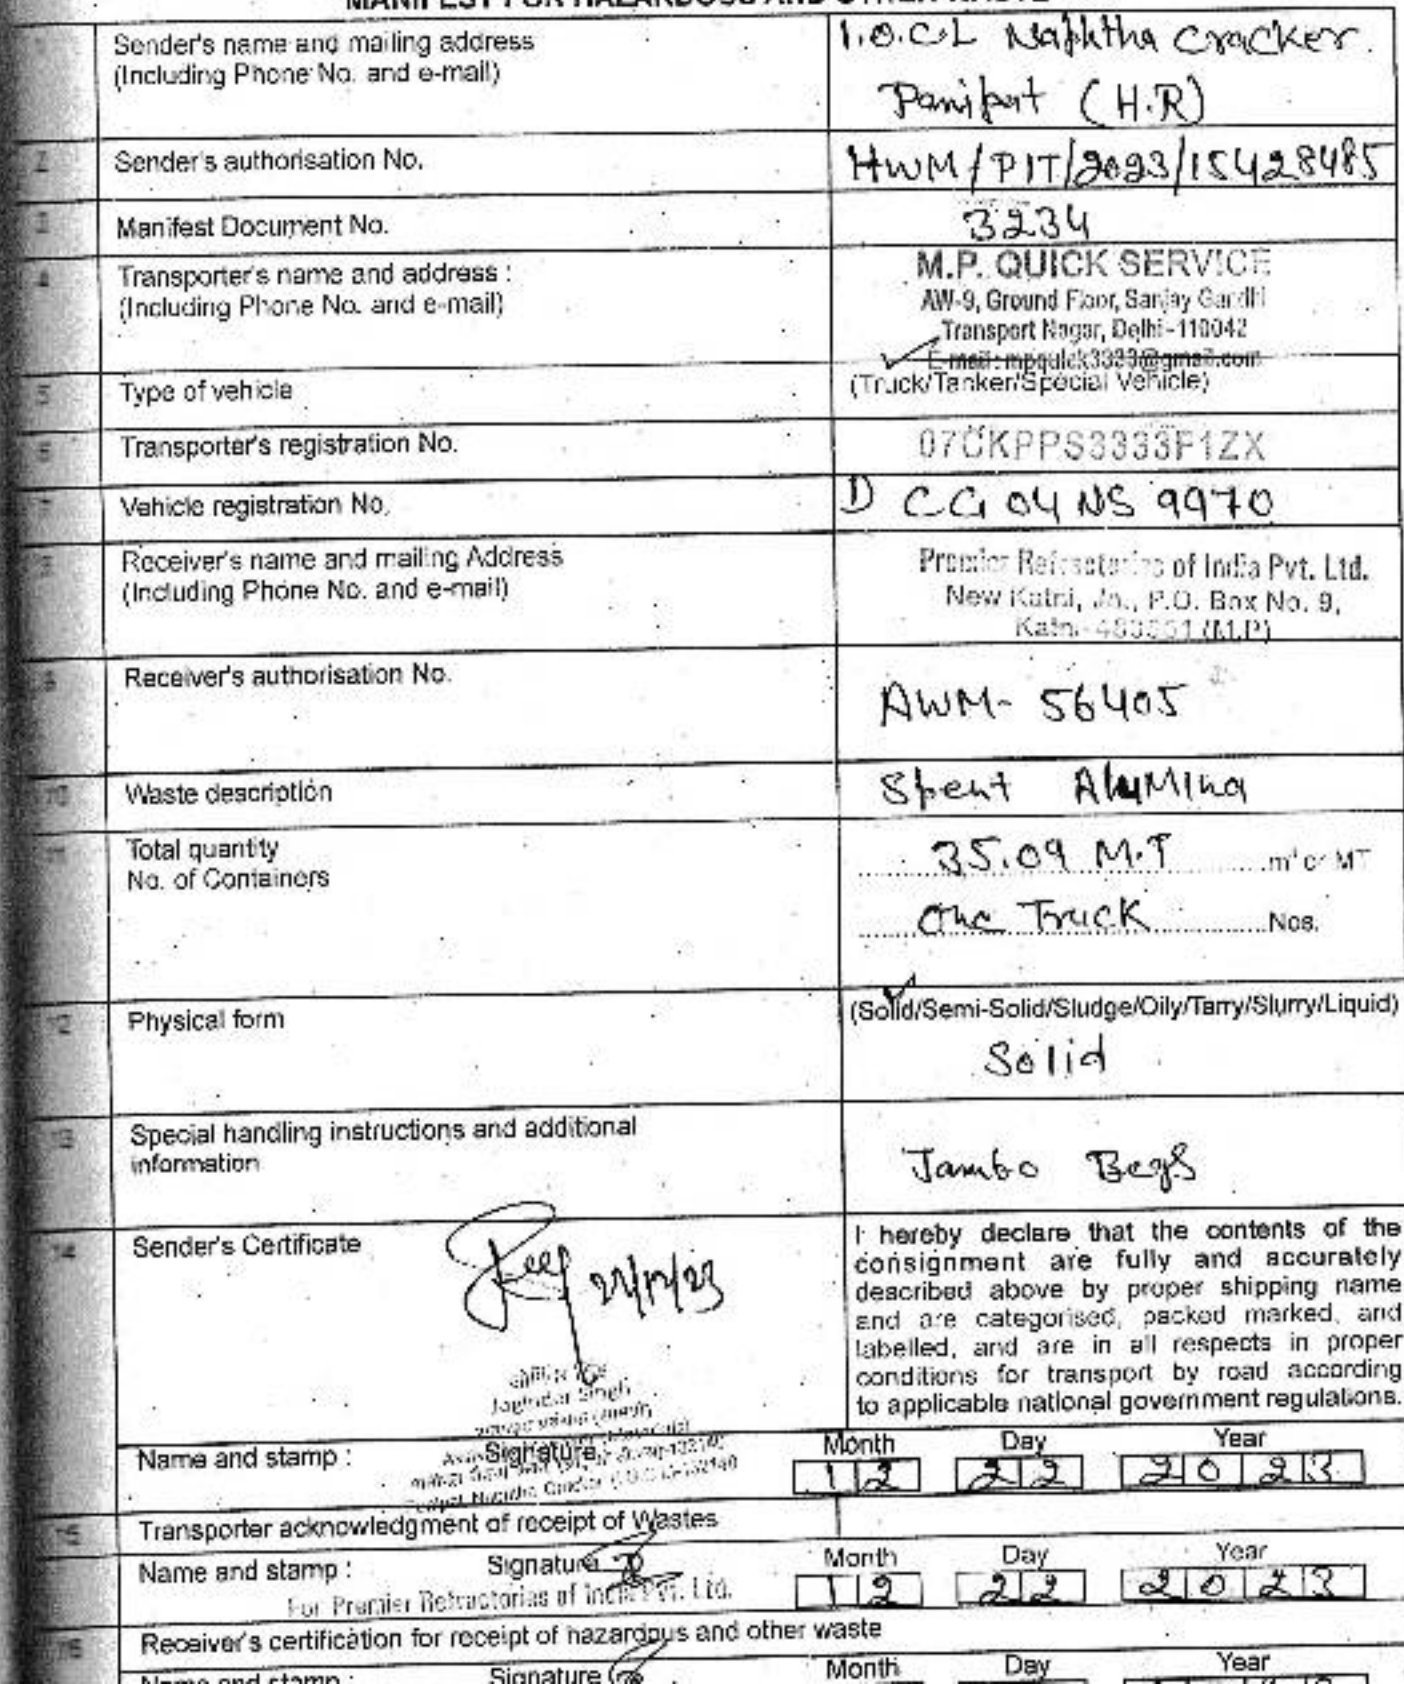 MANIFEST FOR HAZARDOUS AND OTHER WASTE
Sender's name and mailing address
(Including Phone No. and e-mail)
I.O.C.L Naphtha Cracker.
Panipat (H.R)
2 Sender's authorisation No.
HWM/PIT/2023/15428485
3 Manifest Document No.
3234
4 Transporter's name and address :
(Including Phone No. and e-mail)
M.P. QUICK SERVICE
AW-9, Ground Floor, Sanjay Gandhi
Transport Nagar, Delhi-110042
E-mail: mpquick3333@gmail.com
5 Type of vehicle
(Truck/Tanker/Special Vehicle)
6 Transporter's registration No.
07CKPPS3333F1ZX
7 Vehicle registration No.
D CG 04 NS 9970
Receiver's name and mailing Address
(Including Phone No. and e-mail)
Premier Refractories of India Pvt. Ltd.
New Katni, Jn., P.O. Box No. 9,
Katni (M.P)
Receiver's authorisation No.
AWM- 56405
10 Waste description
Spent AluMina
Total quantity
No. of Containers
35.09 M.T m³ or MT
One Truck Nos.
12 Physical form
(Solid/Semi-Solid/Sludge/Oily/Tarry/Slurry/Liquid)
Solid
13 Special handling instructions and additional
information
Jambo Begs
14 Sender's Certificate
I hereby declare that the contents of the
consignment are fully and accurately
described above by proper shipping name
and are categorised, packed marked, and
labelled, and are in all respects in proper
conditions for transport by road according
to applicable national government regulations.
Joginder Singh
Name and stamp : Signature
Month Day Year
12 22 2023
15 Transporter acknowledgment of receipt of Wastes
Name and stamp : Signature
Month Day Year
12 22 2023
For Premier Refractories of India Pvt. Ltd.
16 Receiver's certification for receipt of hazardous and other waste
Name and stamp : Signature
Month Day Year